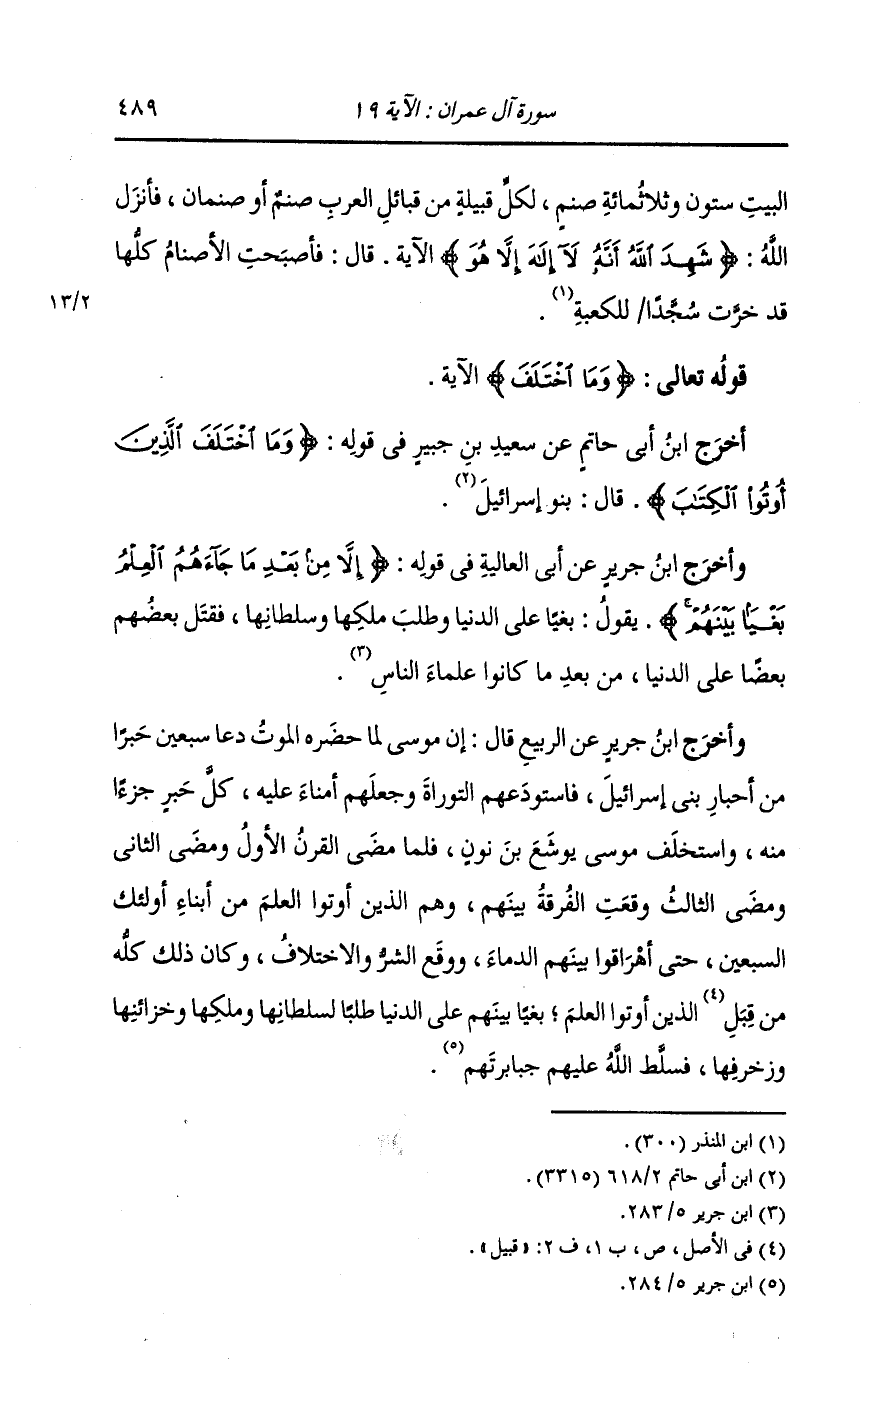 سورة آل عمران : الآية ١٩
٤٨٩
البيتِ ستون وثلاثُمائةِ صنمٍ ، لكلِّ قبيلةٍ من قبائلِ العربِ صنمٌ أو صنمان ، فأنزَل
اللَّهُ : ﴿ شَهِدَ ٱللَّهُ أَنَّهُۥ لَآ إِلَٰهَ إِلَّا هُوَ ﴾ الآية . قال : فأصبَحتِ الأصنامُ كلُّها
قد خرَّت سُجَّدًا/ للكعبةِ(١) .
١٣/٢
قولُه تعالى : ﴿ وَمَا ٱخْتَلَفَ ﴾ الآية .
أخرَج ابنُ أبى حاتمٍ عن سعيدِ بنِ جبيرٍ فى قولِه : ﴿ وَمَا ٱخْتَلَفَ ٱلَّذِينَ
أُوتُوا۟ ٱلْكِتَٰبَ ﴾ . قال : بنو إسرائيلَ(٢) .
وأخرَج ابنُ جريرٍ عن أبى العاليةِ فى قولِه : ﴿ إِلَّا مِنۢ بَعْدِ مَا جَآءَهُمُ ٱلْعِلْمُ
بَغْيَۢا بَيْنَهُمْ ۗ ﴾ . يقولُ : بغيًا على الدنيا وطلبَ ملكِها وسلطانِها ، فقتَل بعضُهم
بعضًا على الدنيا ، من بعدِ ما كانوا علماءَ الناسِ(٣) .
وأخرَج ابنُ جريرٍ عن الربيعِ قال : إن موسى لما حضَره الموتُ دعا سبعين حَبرًا
من أحبارِ بنى إسرائيلَ ، فاستودَعهم التوراةَ وجعلَهم أمناءَ عليه ، كلَّ حَبرٍ جزءًا
منه ، واستخلَف موسى يوشَعَ بنَ نونٍ ، فلما مضَى القرنُ الأولُ ومضَى الثانى
ومضَى الثالثُ وقعَتِ الفُرقةُ بينَهم ، وهم الذين أوتوا العلمَ من أبناءِ أولئك
السبعين ، حتى أهْرَاقوا بينَهم الدماءَ ، ووقَع الشرُّ والاختلافُ ، وكان ذلك كلُّه
من قِبَلِ(٤) الذين أوتوا العلمَ ؛ بغيًا بينَهم على الدنيا طلبًا لسلطانِها وملكِها وخزائنِها
وزخرفِها ، فسلَّط اللَّهُ عليهم جبابرتَهم(٥) .
(١) ابن المنذر (٣٠٠) .
(٢) ابن أبى حاتم ٦١٨/٢ (٣٣١٥) .
(٣) ابن جرير ٥/ ٢٨٣.
(٤) فى الأصل ، ص ، ب ١، ف ٢: « قبيل » .
(٥) ابن جرير ٥/ ٢٨٤.